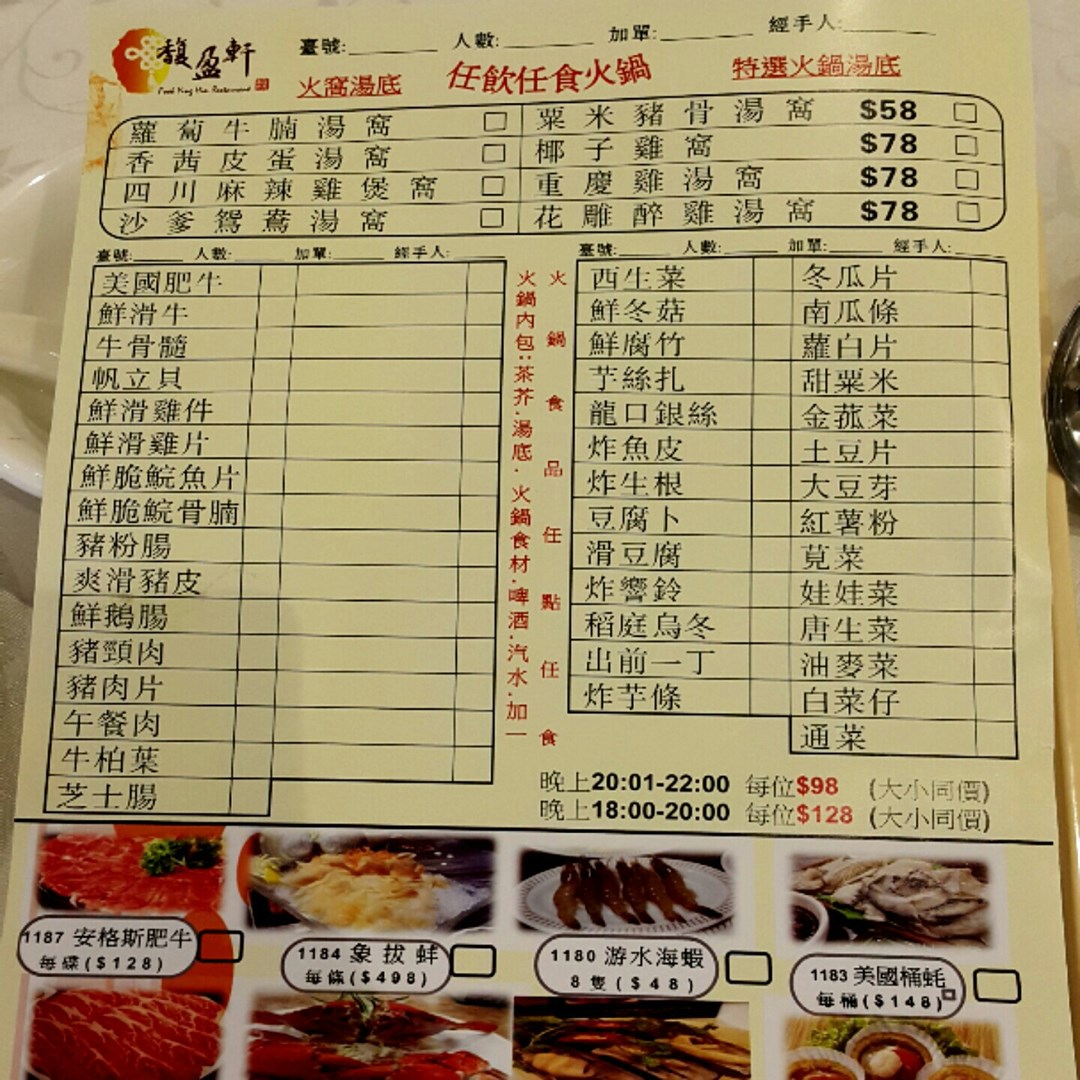 馥盈軒
臺號:
人數:
加單:
經手人:
火窩湯底
任飲任食火鍋
特選火鍋湯底
蘿蔔牛腩湯窩
粟米豬骨湯窩 $58
香茜皮蛋湯窩
椰子雞窩 $78
四川麻辣雞煲窩
重慶雞湯窩 $78
沙爹鴛鴦湯窩
花雕醉雞湯窩 $78
臺號: 人數: 加單: 經手人:
美國肥牛
鮮滑牛
牛骨髓
帆立貝
鮮滑雞件
鮮滑雞片
鮮脆鯇魚片
鮮脆鯇骨腩
豬粉腸
爽滑豬皮
鮮鵝腸
豬頸肉
豬肉片
午餐肉
牛柏葉
芝士腸
火鍋內包::茶芥.湯底.火鍋食材.啤酒.汽水.加一
火鍋食品任點任食
臺號: 人數: 加單: 經手人:
西生菜
鮮冬菇
鮮腐竹
芋絲扎
龍口銀絲
炸魚皮
炸生根
豆腐卜
滑豆腐
炸響鈴
稻庭烏冬
出前一丁
炸芋條
冬瓜片
南瓜條
蘿白片
甜粟米
金菰菜
土豆片
大豆芽
紅薯粉
莧菜
娃娃菜
唐生菜
油麥菜
白菜仔
通菜
晚上20:01-22:00 每位$98 (大小同價)
晚上18:00-20:00 每位$128 (大小同價)
1187 安格斯肥牛
每碟($128)
1184 象拔蚌
每條($498)
1180 游水海蝦
8隻($48)
1183 美國桶蚝
每桶($148)